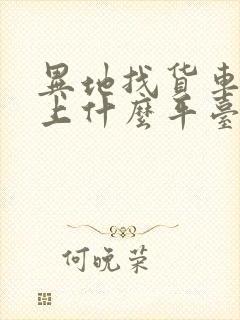 異地找货車
上什麼平臺
何晚荣